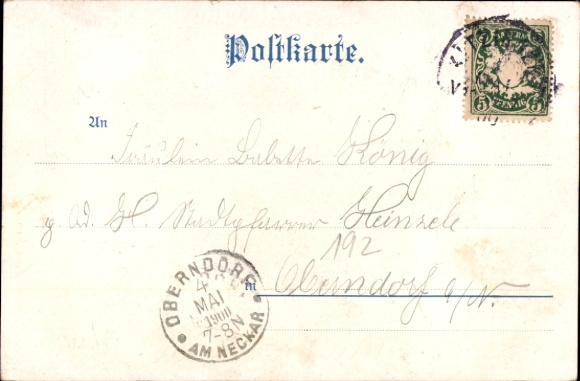 Postkarte.
BAYERN
5 PFENNIG 5
An
Fräulein Babette König
g. Ad. H. Stadtpfarrer Heinzele
192
in Oberndorf a/N.
OBERNDORF
4
MAI
1900
7-8N
AM NECKAR